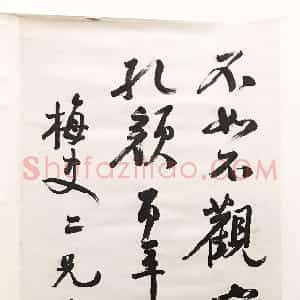 不如不觀
孔顏百年
梅史二兄
Shufaziliao.COM